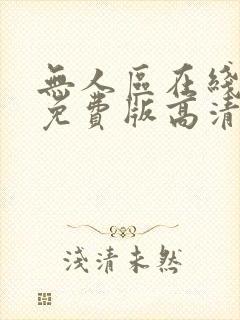 無人區在綫
免費版高清
淺清未然